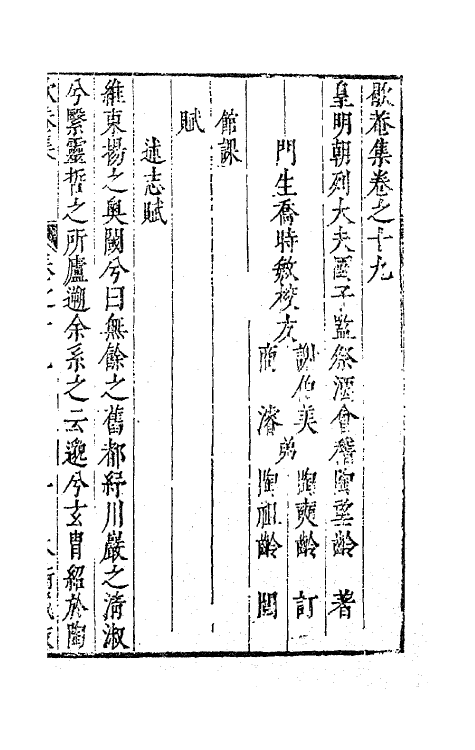 歇菴集卷之十九
皇明朝列大夫國子監祭酒會稽陶望齡著
門生喬時敏校方
謝伯美 弟 陶奭齡 訂
商濬 陶祖齡 閱
館課
賦
述志賦
維東揚之奧閫兮曰無餘之舊都紓川巖之淸淑
兮繄靈哲之所廬遡余系之云邈兮玄冑紹於陶
歇菴集 卷之十九 一